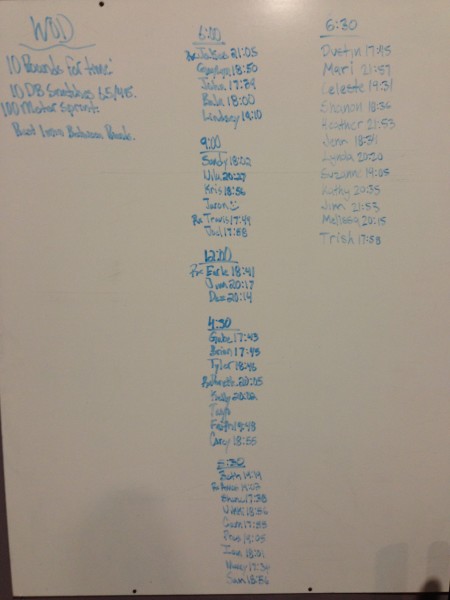 WOD
10 Rounds for time:
10 DB Snatches 65/45.
100 Meter Sprint.
Rest Between
6:00
21:05
18:50
Julia 17:39
18:00
Lindsay 19:10
9:00
Sandy 18:02
20:27
Kris 18:56
Jaron
Rx Travis 17:44
17:58
12:00
Rx Earle 18:41
20:17
20:14
4:30
Gabe 17:43
Brian 17:45
Tyler 18:46
20:05
Kelly 20:02
Faith 19:48
Carey 18:55
5:30
Beth 19:19
17:38
18:56
Cam 17:55
19:05
Ian 18:01
17:30
Sam 18:56
6:30
Dustin 17:45
Mari 21:57
Celeste 19:31
Shanon 18:36
Heather 21:53
Jenn 18:31
Lynda 20:20
Suzann 19:05
Kathy 20:35
Jim 21:53
Melissa 20:15
Trish 17:58